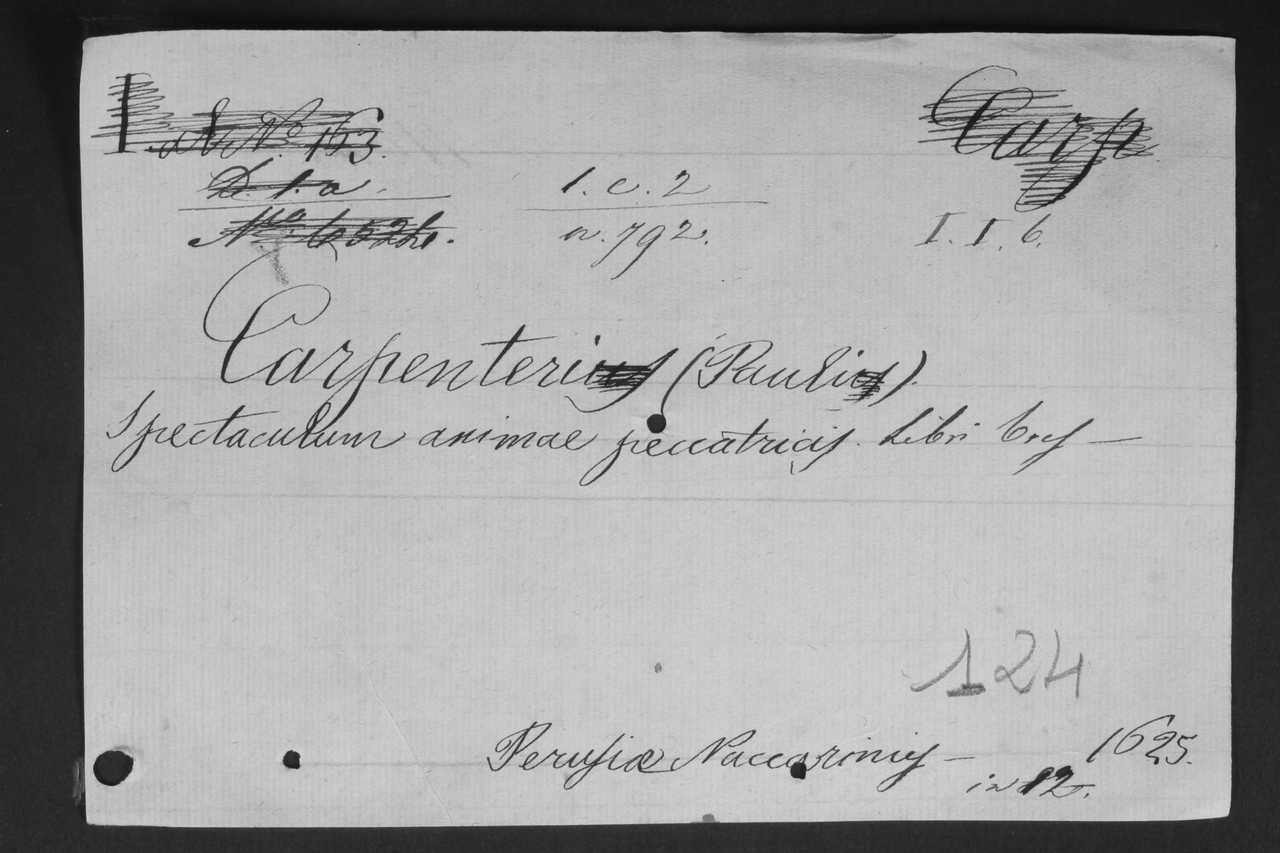 N.º 163.
Carp
D. 1. a.
1. c. 2
n. 792.
I. I. 6.
Carpenterius (Paulius).
Spectaculum animae peccatricis. Libri tres —
124
Perusiae Naccarinis — 1625.
in 12.